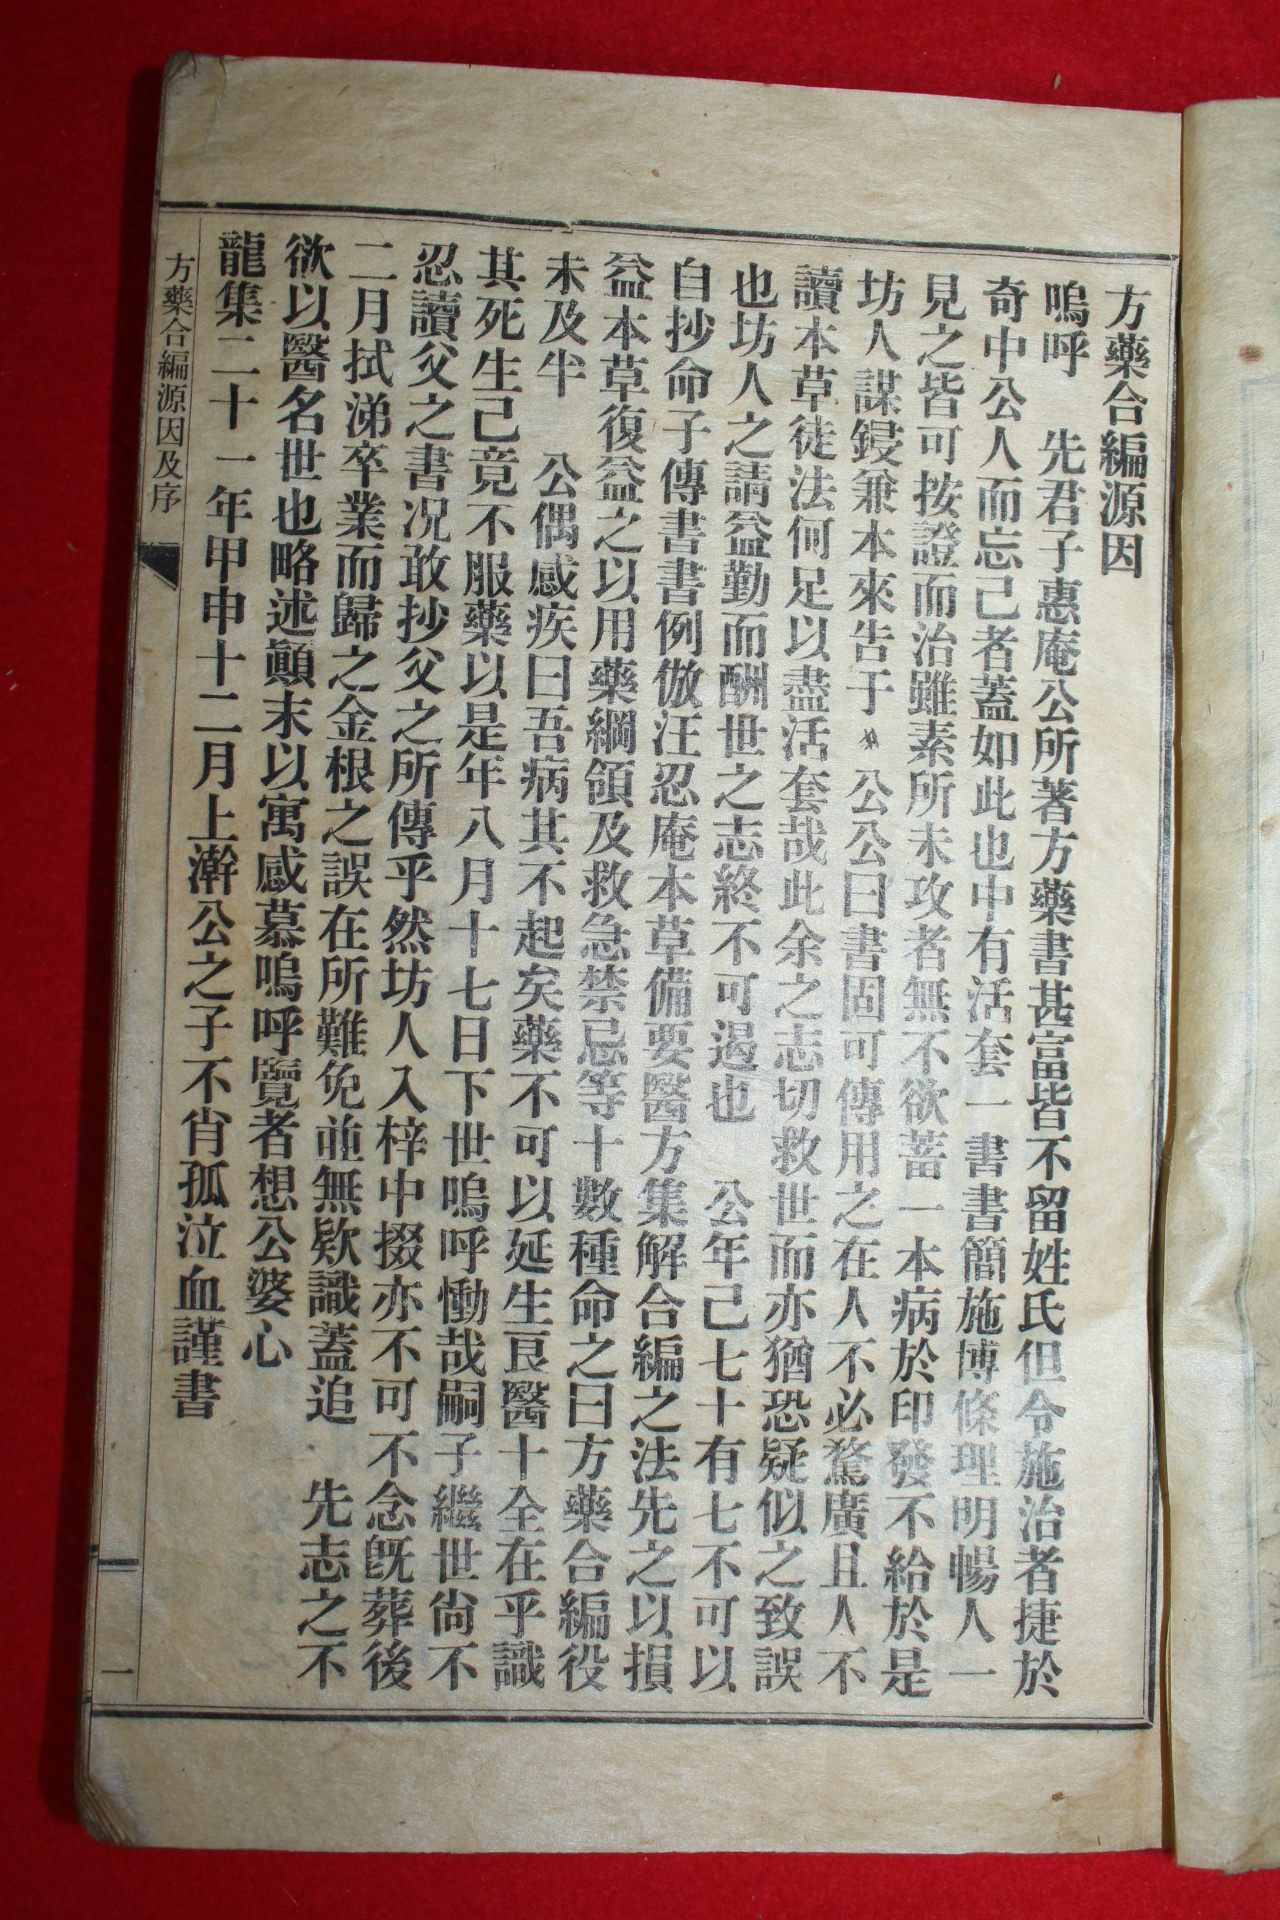 方藥合編源因
嗚呼 先君子惠庵公所著方藥書甚富皆不留姓氏但令施治者捷於
奇中公人而忘己者蓋如此也中有活套一書書簡施博條理明暢人一
見之皆可按證而治雖素所未攻者無不欲蓄一本病於印發不給於是
坊人謀鋟兼本來告于 公公曰書固可傳用之在人不必騖廣且人不
讀本草徒法何足以盡活套哉此余之志切救世而亦猶恐疑似之致誤
也坊人之請益勤而酬世之志終不可遏也 公年己七十有七不可以
自抄命子傳書書例倣汪忍庵本草備要醫方集解合編之法先之以損
益本草復益之以用藥綱領及救急禁忌等十數種命之曰方藥合編役
未及半 公偶感疾曰吾病其不起矣藥不可以延生良醫十全在乎識
其死生己竟不服藥以是年八月十七日下世嗚呼慟哉嗣子繼世尙不
忍讀父之書況敢抄父之所傳乎然坊人入梓中掇亦不可不念旣葬後
二月拭涕卒業而歸之金根之誤在所難免並無欵識蓋追 先志之不
欲以醫名世也略述顚末以寓感慕嗚呼覽者想公婆心
龍集二十一年甲申十二月上澣公之子不肖孤泣血謹書
方藥合編源因及序
一